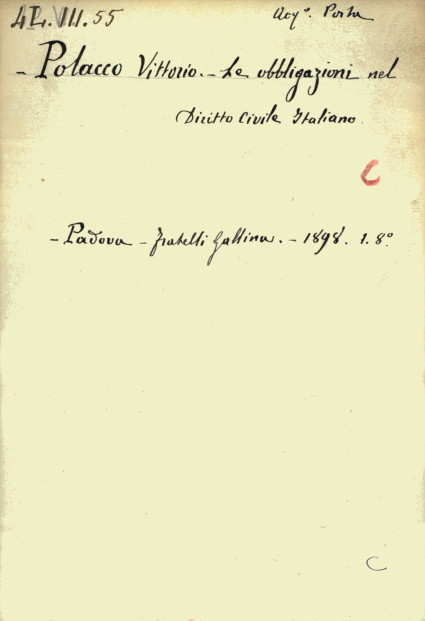 4L.VII.55
Acqº. Porta
- Polacco Vittorio. - Le obbligazioni nel
Diritto Civile Italiano.
C
- Padova - Fratelli Gallina. - 1898. 1. 8º
C